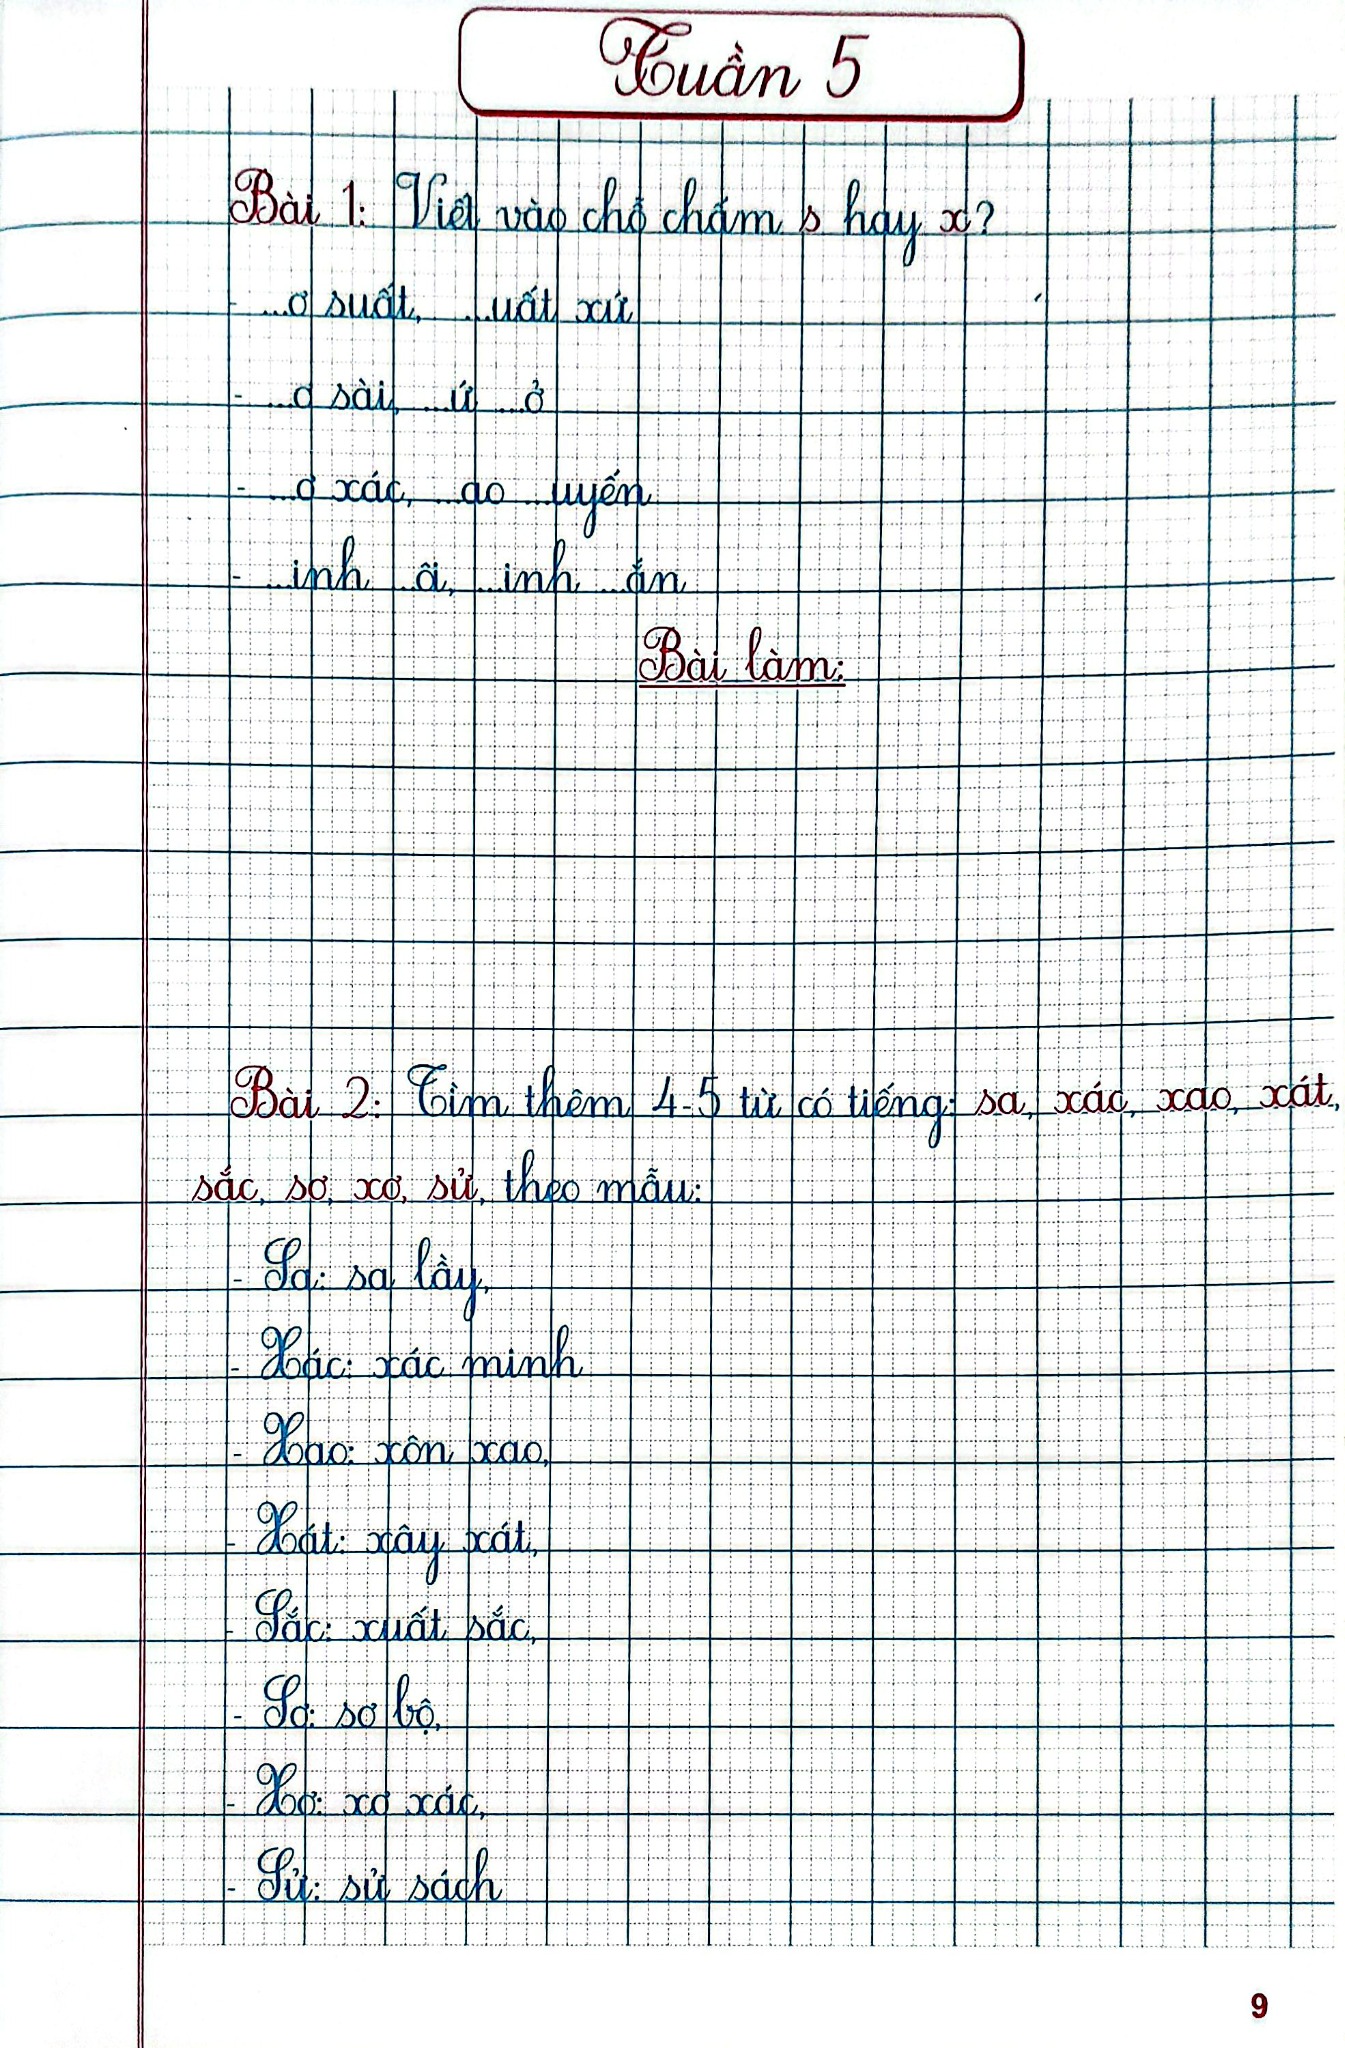 Tuần 5
Bài 1: Viết vào chỗ chấm s hay x?
- ...ơ suất, ...uất xứ
- ...ơ sài, ...ứ ...ở
- ...ơ xác, ...ao ...uyến
- ...inh ...ôi, ...inh ...ắn
Bài làm:
Bài 2: Tìm thêm 4-5 từ có tiếng: sa, xác, xao, xát,
sắc, sơ, xơ, sử, theo mẫu:
- Sa: sa lầy,
- Xác: xác minh
- Xao: xôn xao,
- Xát: xây xát,
- Sắc: xuất sắc,
- Sơ: sơ bộ,
- Xơ: xơ xác,
- Sử: sử sách
9